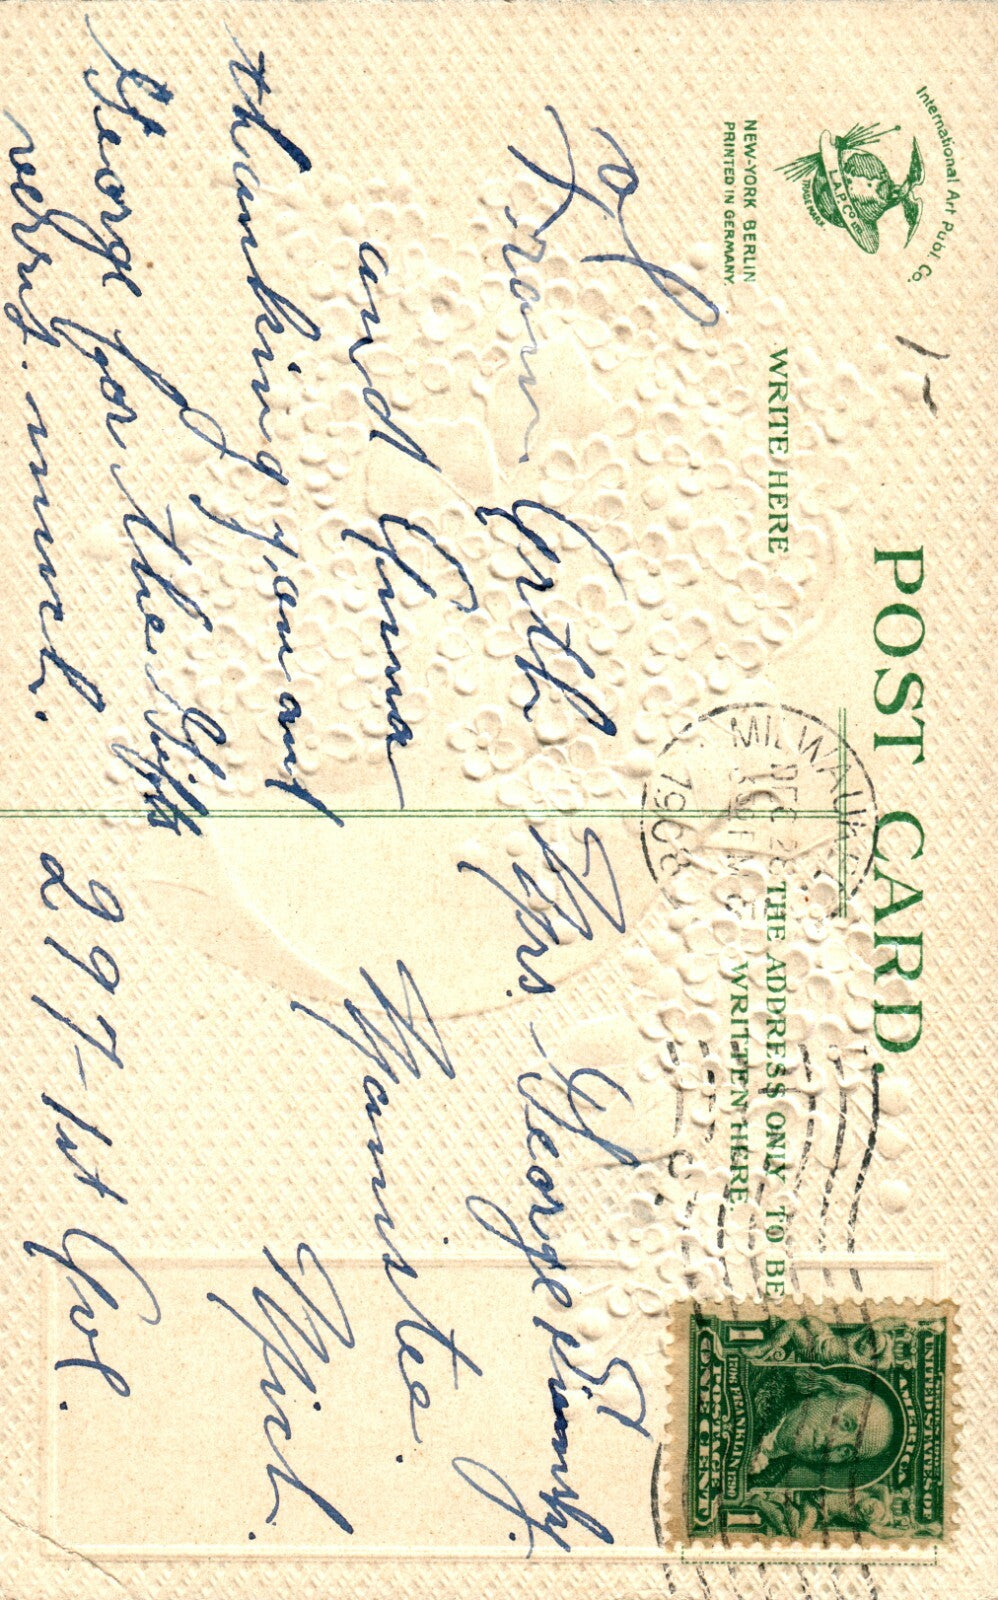 International Art Publ. Co.
I.A.P.Co
TRADE MARK
NEW-YORK BERLIN
PRINTED IN GERMANY.
POST CARD.
WRITE HERE
THE ADDRESS ONLY TO BE
WRITTEN HERE.
MILWAUKEE
DEC 28
1908
1-
From
and
thanking you and
George for the Gifts
verry. much.
Mrs. George
Manistee.
Mich.
297-1st Ave.
UNITED STATES OF
AMERICA
FRANKLIN
POSTAGE
1 ONE CENT 1